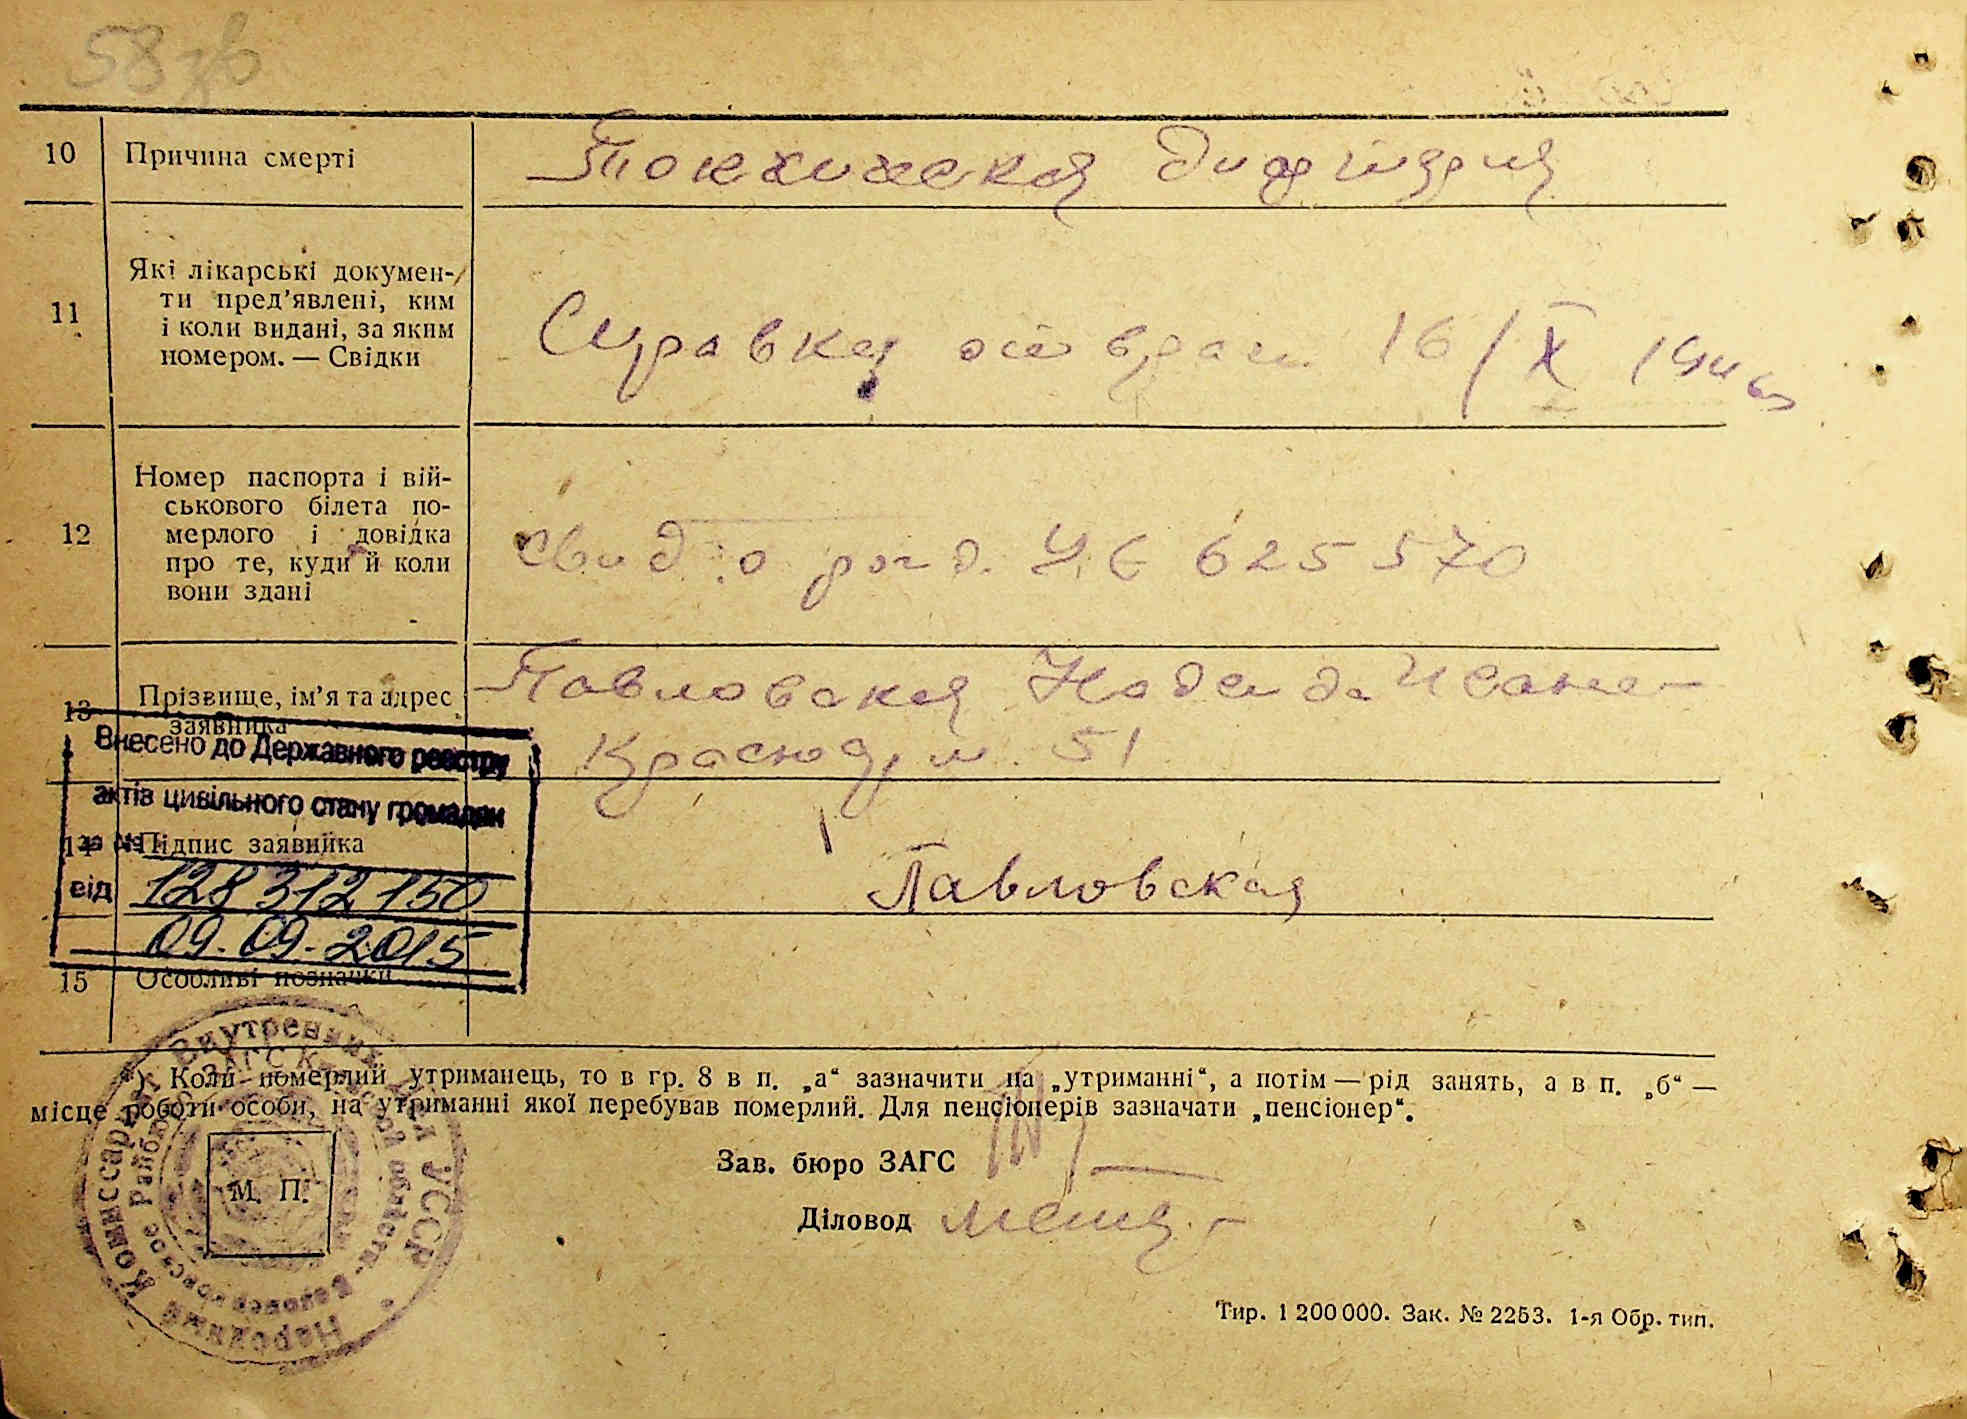 58 зв
10 Причина смерті Токсическая дифтерия
11 Які лікарські докумен-
ти пред’явлені, ким
і коли видані, за яким
номером. — Свідки
Справка от врача 16/X
12 Номер паспорта і вій-
ськового білета по-
мерлого і довідка
про те, куди й коли
вони здані
Свид о рожд. УБ 625570
13 Прізвище, ім’я та адрес
заявника
Павловская
51
Внесено до Державного реєстру
актів цивільного стану громадян
за №
14 Підпис заявника
Павловская
128312150
від
09.09.2015
15 Особливі позначки
*) Коли померлий утриманець, то в гр. 8 в п. „а“ зазначити на „утриманні“, а потім — рід занять, а в п. „б“ —
місце роботи особи, на утриманні якої перебував померлий. Для пенсіонерів зазначати „пенсіонер“.
Зав. бюро ЗАГС
Діловод
М. П.
Народний Комиссариат Внутренних УССР
Тир. 1 200 000. Зак. № 2253. 1-я Обр. тип.